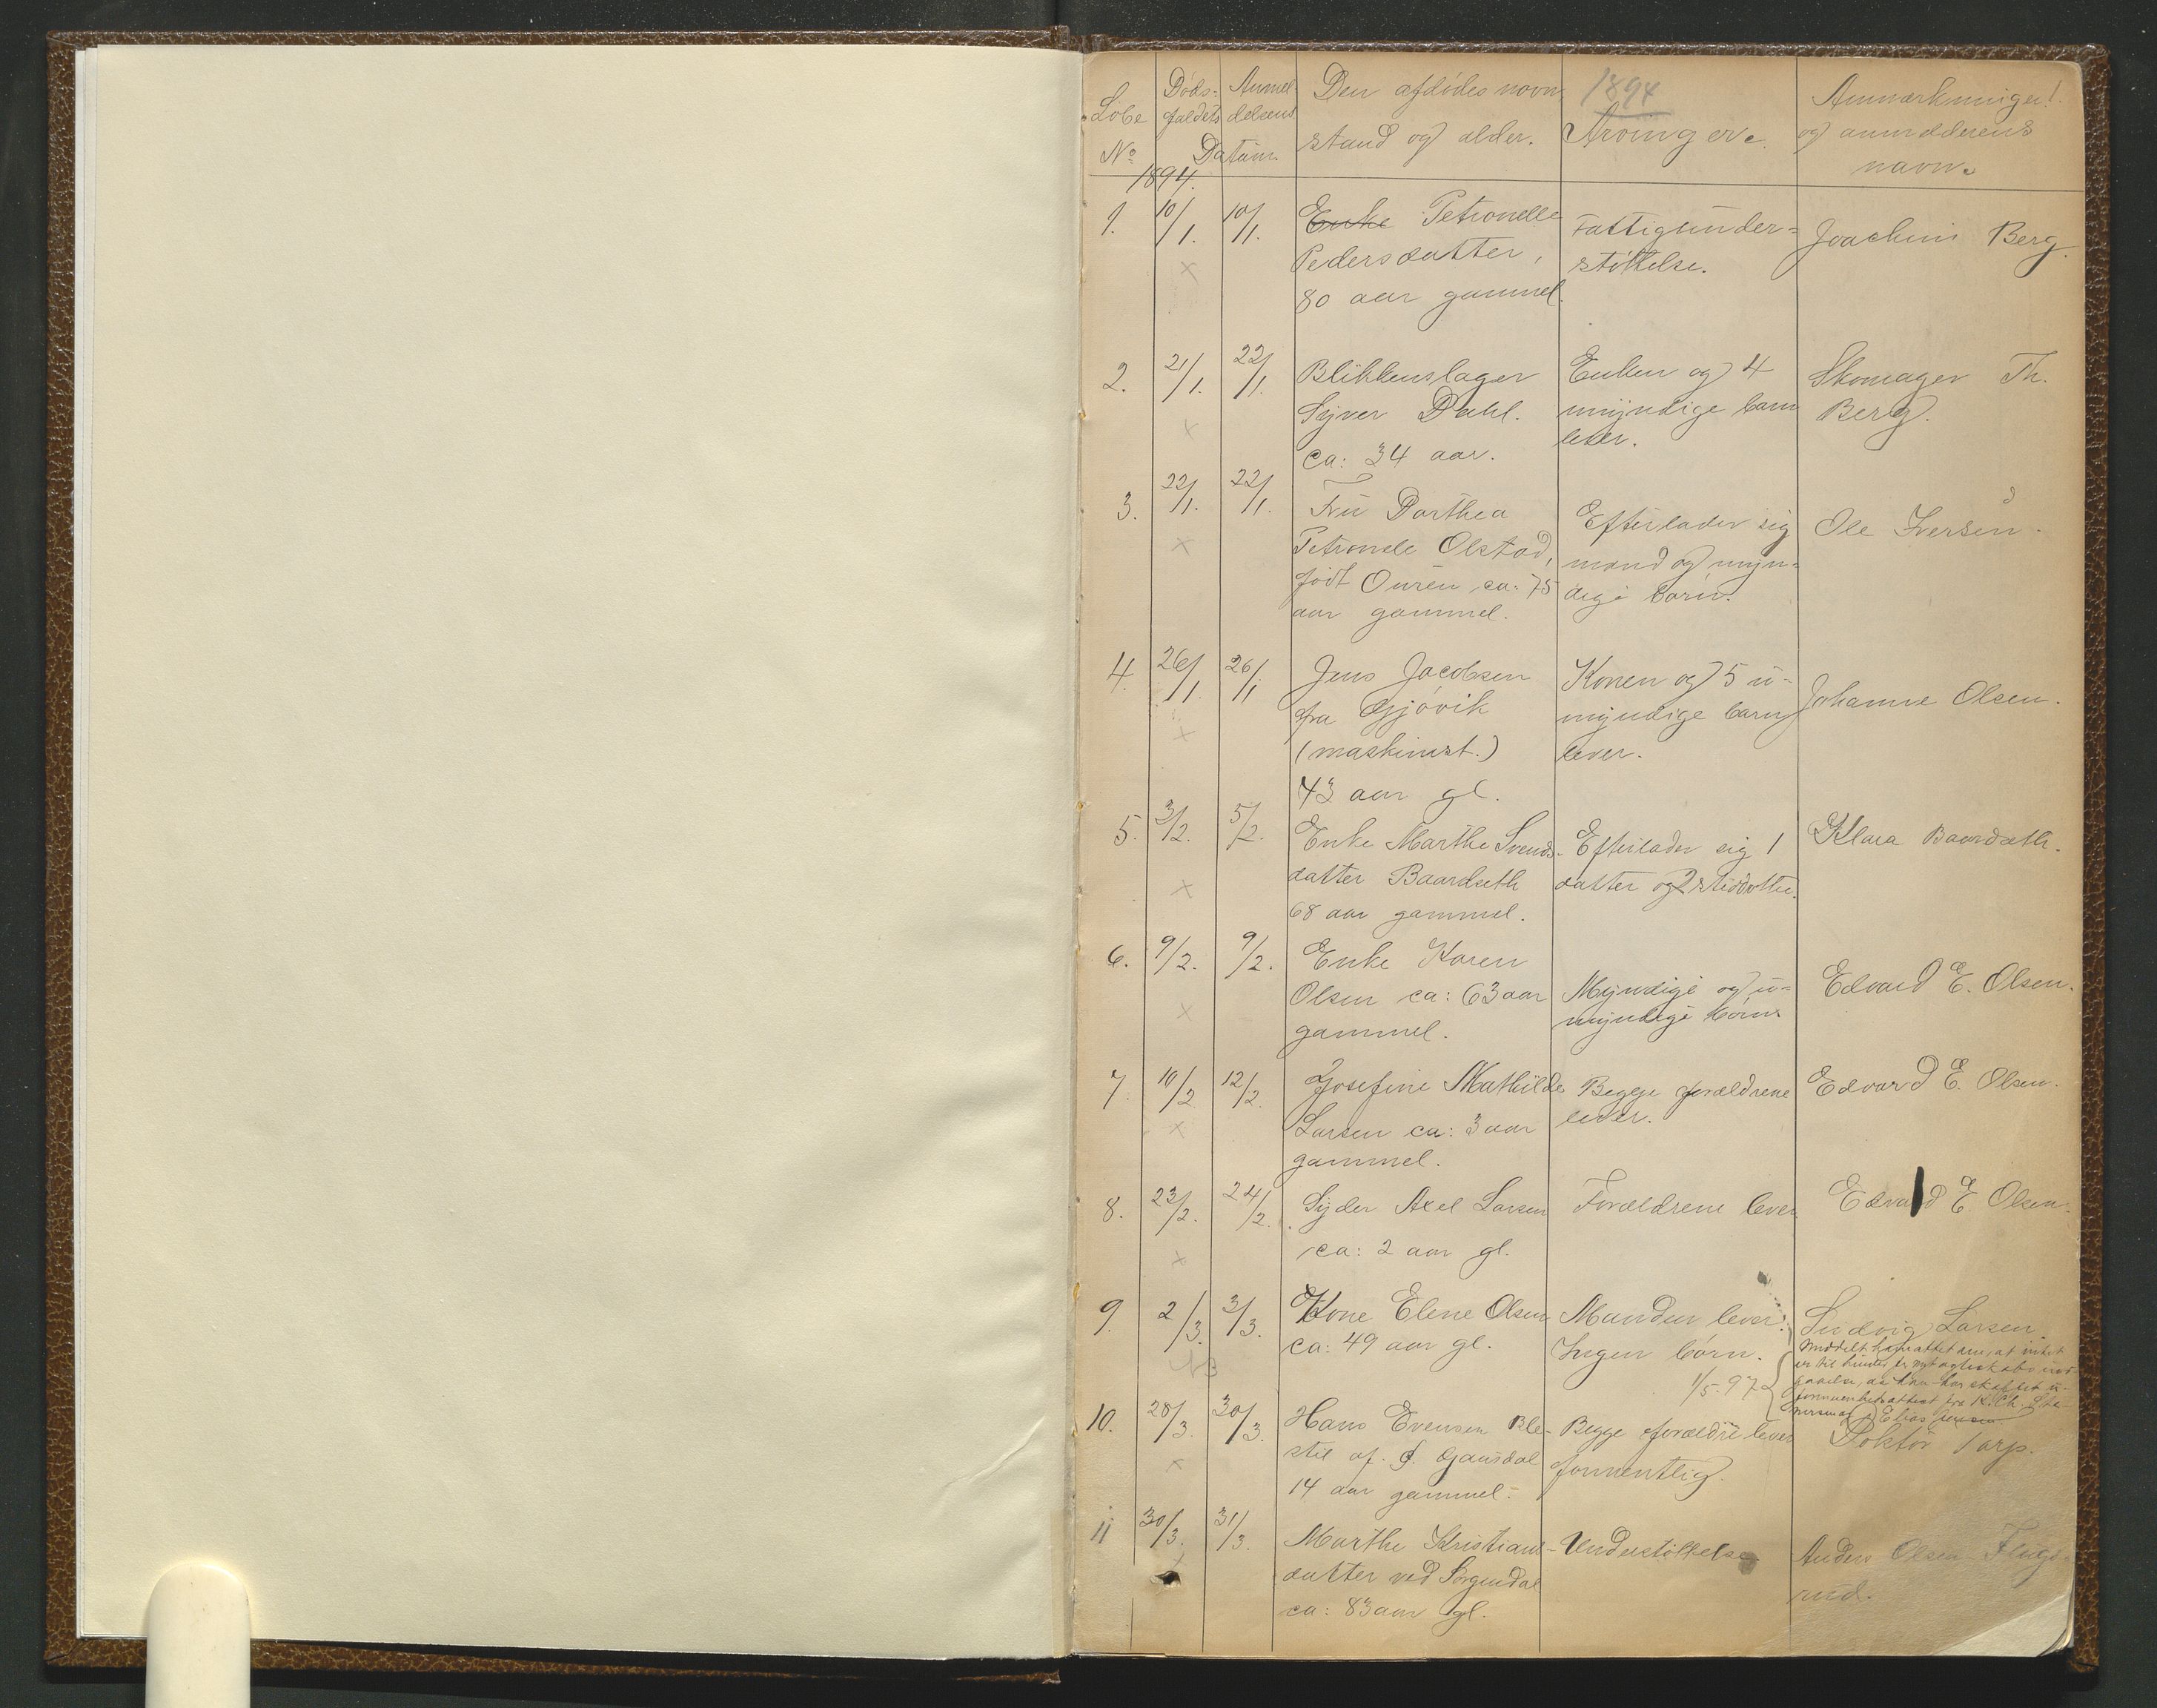 Löbe
No
Döds-
faldets
Anmel-
delsens
Datum.
1894.
Den afdödes navn,
stand og alder.
1894
Arvinger.
Anmærkninger
og anmelderens
navn.
1. 10/1. 10/1. Enke Petronelle
Pedersdatter,
80 aar gammel.
Fattigunder-
støttelse.
Joachim Berg.
2. 21/1. 22/1. Blikkenslager
Syver Dahl.
ca: 34 aar.
Enken og 4
umyndige barn
lever.
Skomager Th.
Berg.
3. 22/1. 22/1. Fru Dorthea
Petronele Olstad,
født Ourén ca: 75
aar gammel.
Efterlader sig
mand og myn-
dige børn.
Ole Iversen.
4. 26/1 26/1 Jens Jacobsen
fra Gjövik
(maskinist.)
43 aar gl.
Konen og 5 u-
myndige barn
lever.
Johanne Olsen.
5. 3/2. 5/2. Enke Marthe Svends-
datter Baardseth
68 aar gammel.
Efterlader sig 1
datter og 2 steddøttre.
Klara Baardseth.
6. 9/2. 9/2. Enke Karen
Olsen ca: 63 aar
gammel.
Myndige og u-
myndige børn
Edvard E. Olsen.
7. 10/2 12/2. Josefine Mathilde
Larsen ca: 3 aar
gammel.
Begge forældrene
lever.
Edvard E. Olsen.
8. 23/2. 24/2. Syder Axel Larsen
ca: 2 aar gl.
Forældrene lever
Edvard E Olsen.
9. 2/3. 3/3. Kone Elene Olsen
ca: 49 aar gl.
NB
Manden lever.
Ingen børn.
1/5. 97
Ludvig Larsen.
Meddelt attest om, at intet
er til hinder for nyt ægteskabs ind-
gaaelse, da han har skaffet
fra K. Ch.
Elias
10. 28/3. 30/3. Hans Evensen Ble-
stil af. Ø. Gausdal
14 aar gammel.
Begge forældre lever
formentlig.
Doktor Tarp.
11 30/3. 31/3. Marthe Kristians-
datter ved Sorgendal
ca: 83 aar gl.
Understøttelse
Anders Olsen Flugs-
rud.